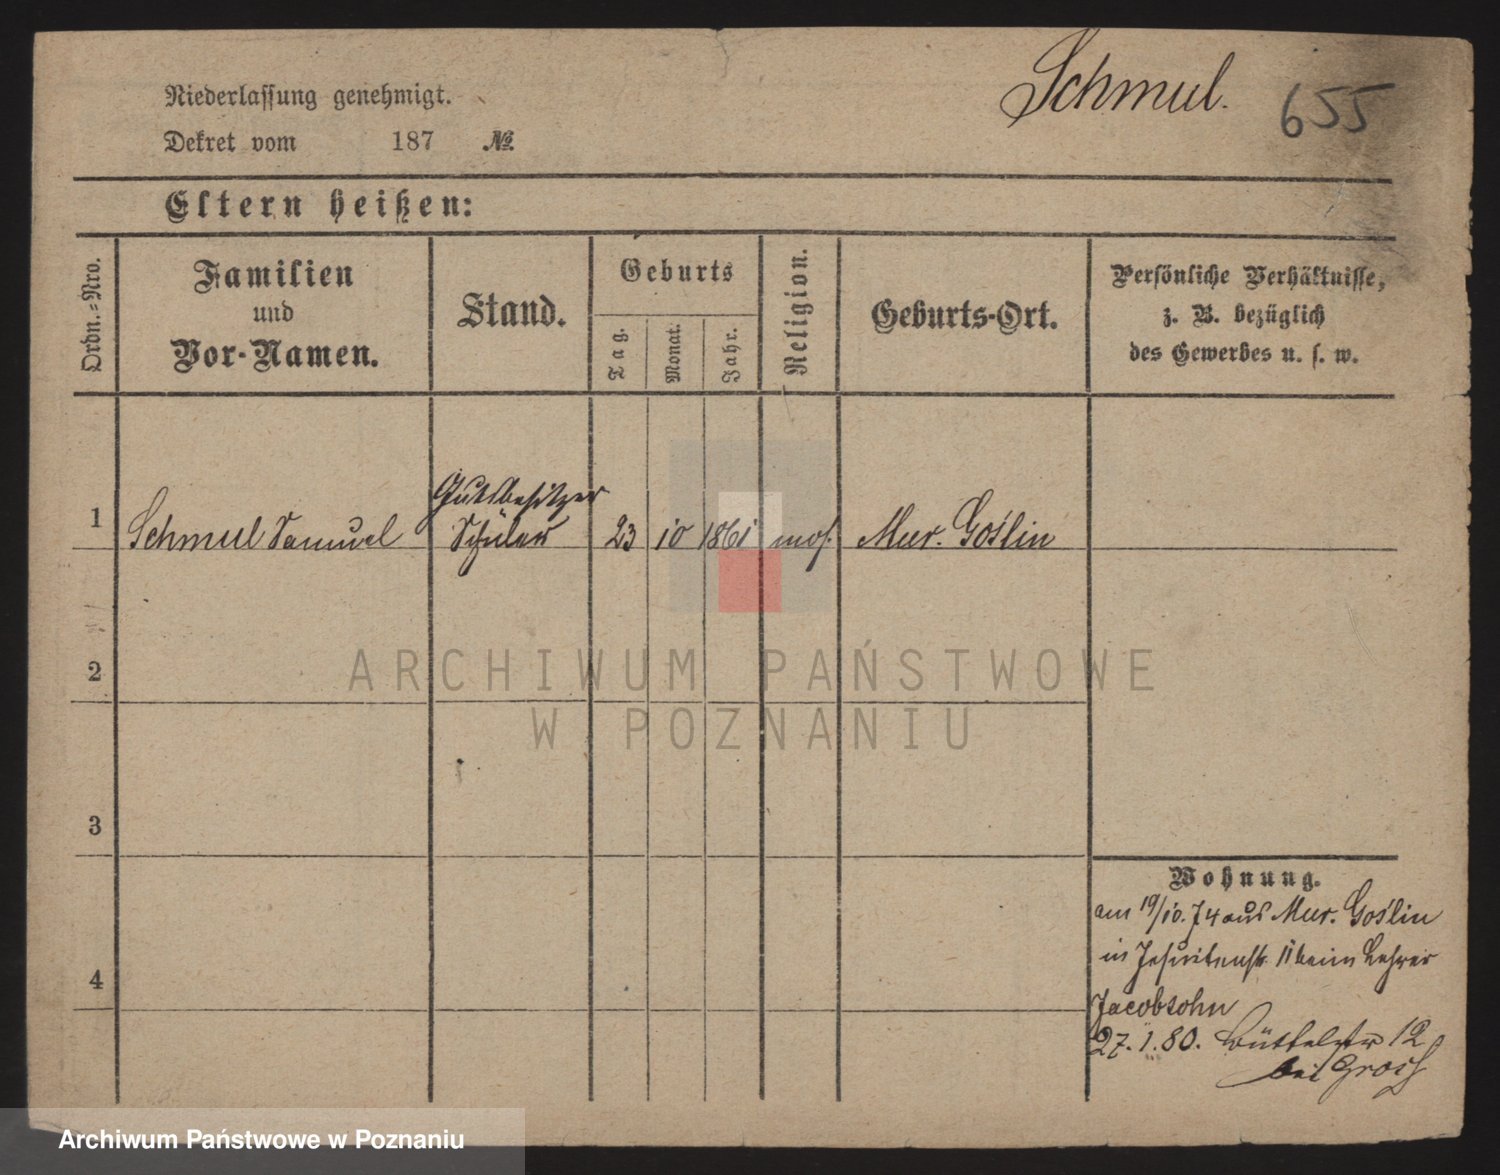 Schmul. 655
Niederlassung genehmigt.
Dekret vom 187 №
Eltern heißen:
Ordn.-Nro.
Familien
und
Vor-Namen.
Stand.
Geburts
Tag.
Monat.
Jahr.
Religion.
Geburts-Ort.
Persönliche Verhältnisse,
z. B. bezüglich
des Gewerbes u. s. w.
Gutsbesitzer
1 Schmul Samuel Schüler 23 10 1861 mos. Mur. Goślin
2
3
4
Wohnung.
am 19/10. 74 aus Mur. Goślin
in Jesuitenstr. 11 beim Lehrer
Jacobsohn
27. 1. 80. Büttelstr 12
bei Gross
ARCHIWUM PAŃSTWOWE
W POZNANIU
Archiwum Państwowe w Poznaniu